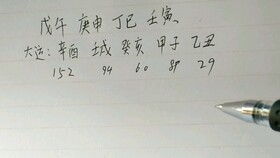 戊午 庚申 丁巳 壬寅
大运: 辛酉 壬戌 癸亥 甲子 乙丑
152 94 60 89 29